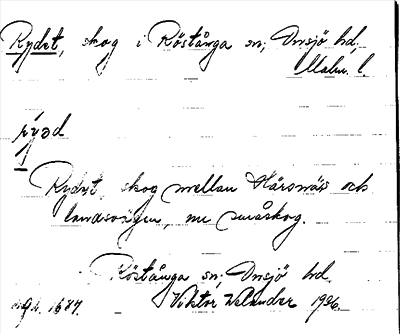 Rydet, skog i Röstånga sn, Onsjö hd,
Malm. l.
rýəd
Rydet, skog mellan Härsnäs och
landsvägen, nu småskog.
Röstånga sn, Onsjö hd.
1677. Viktor Welander 1926.